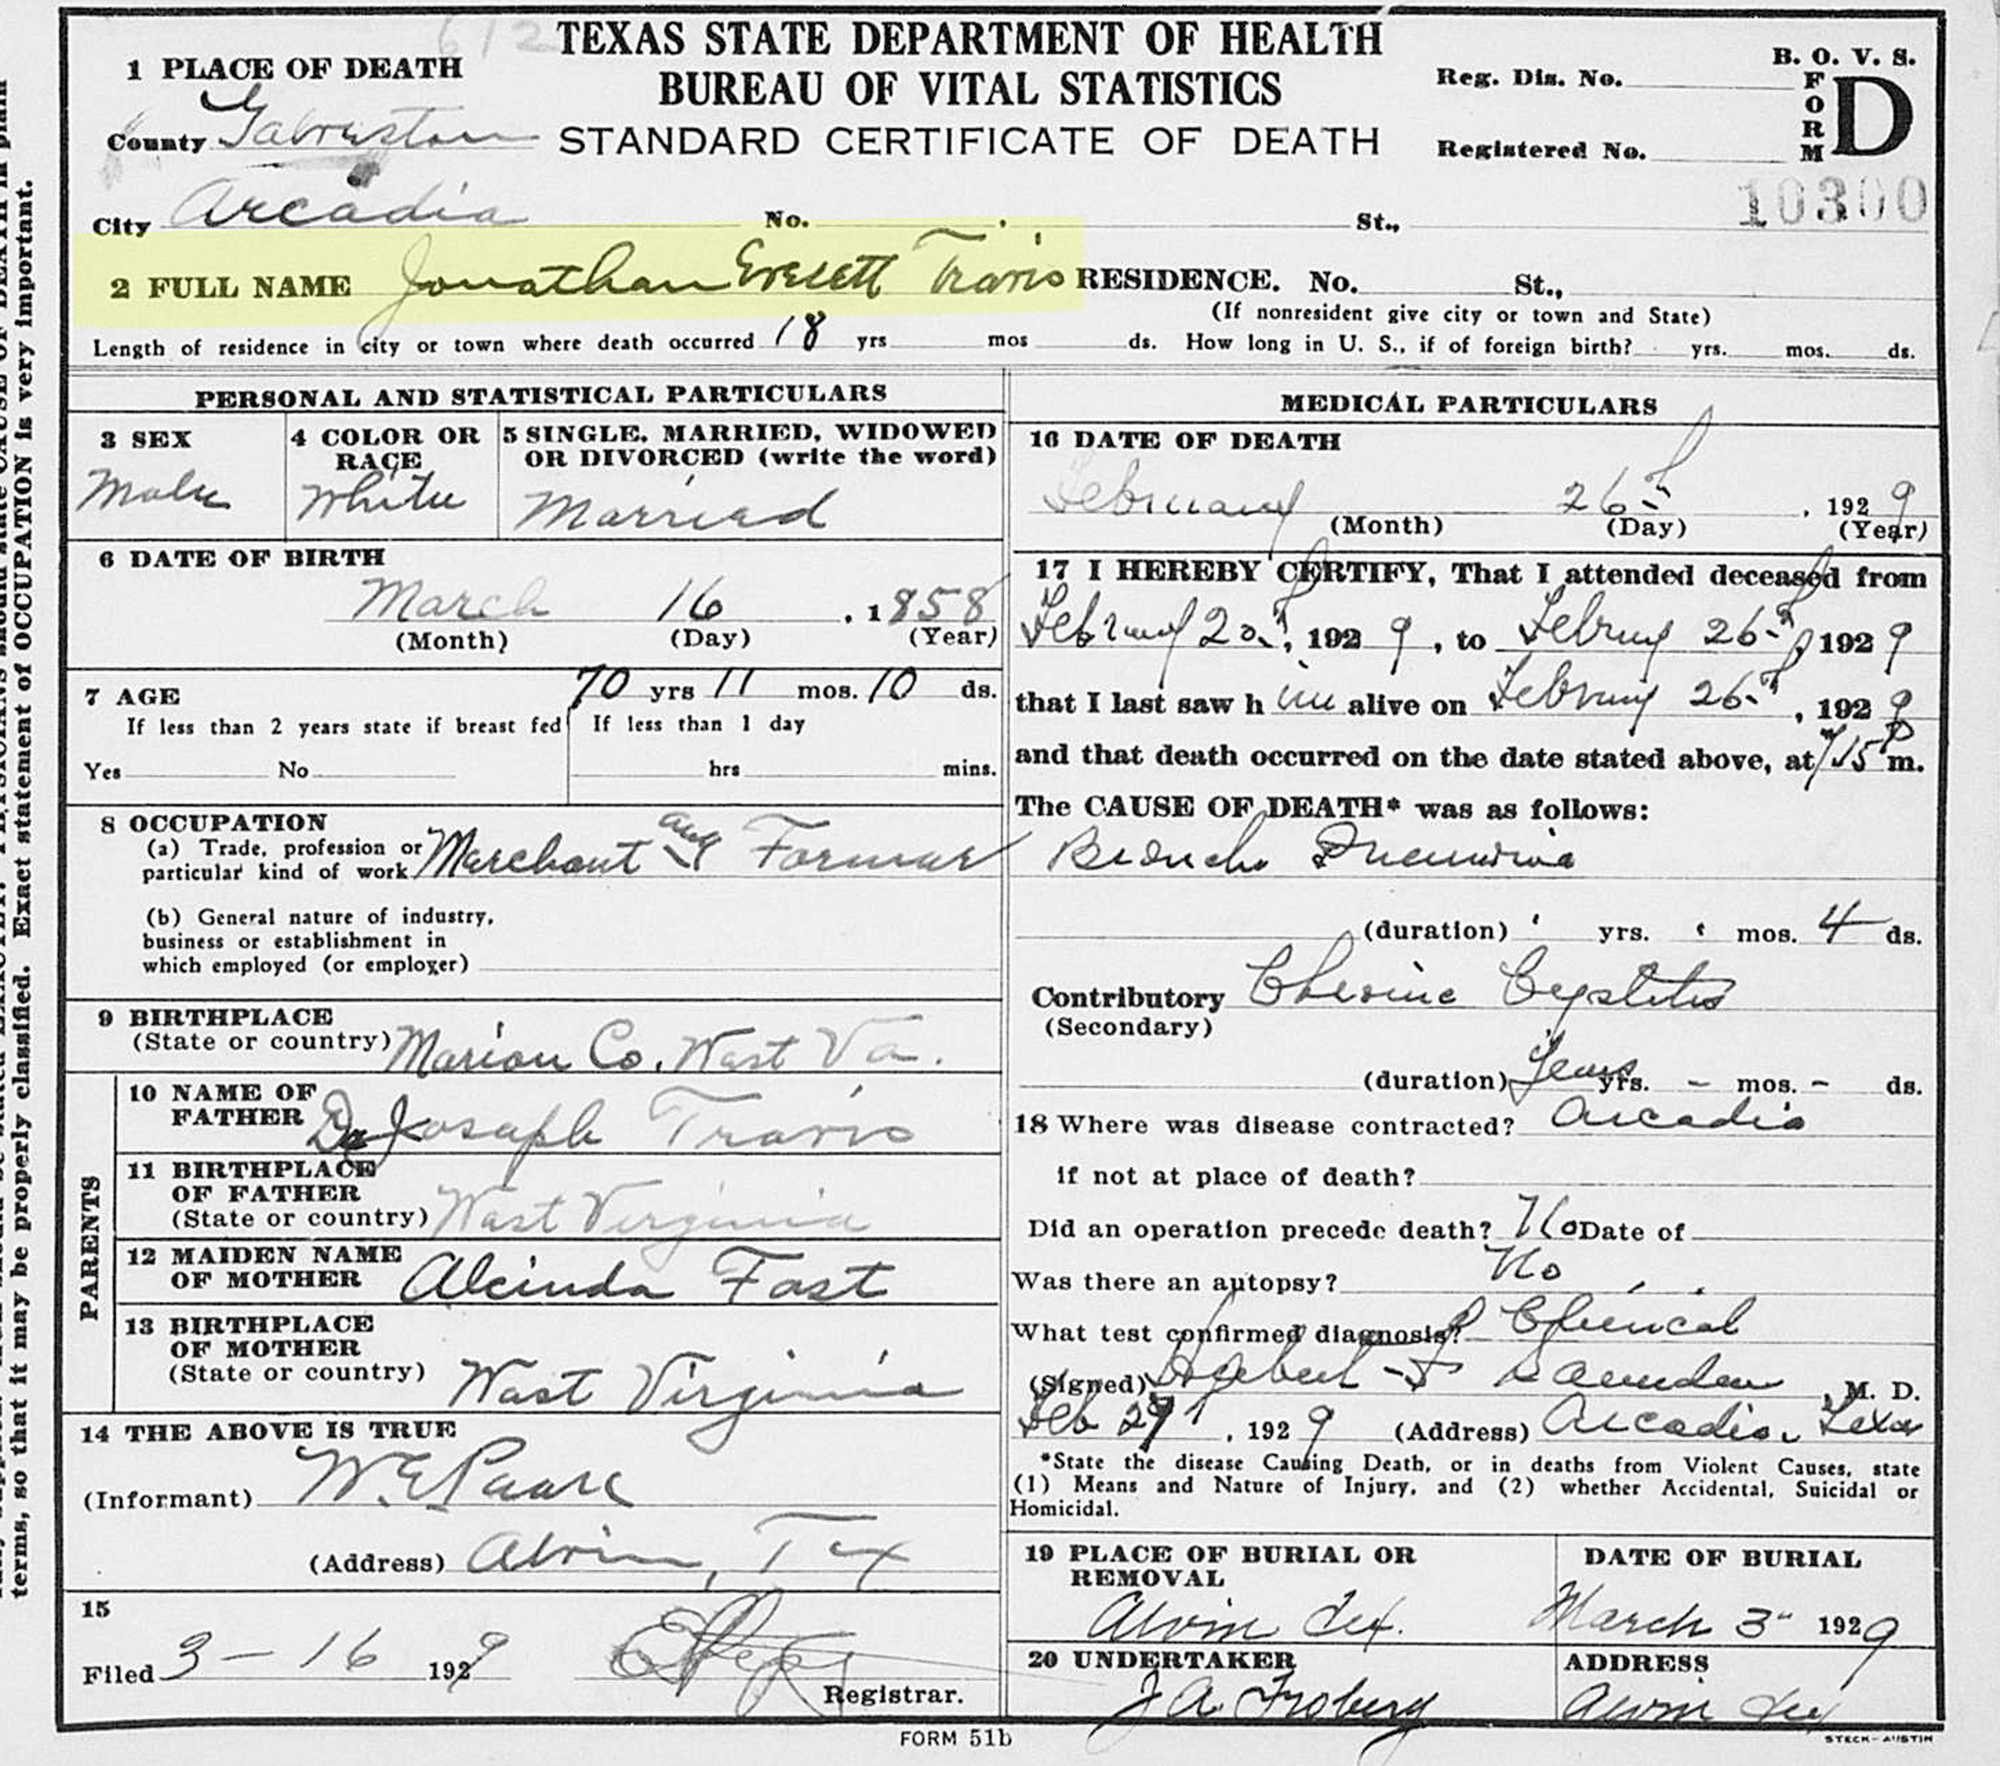 TEXAS STATE DEPARTMENT OF HEALTH
BUREAU OF VITAL STATISTICS
STANDARD CERTIFICATE OF DEATH
B. O. V. S.
FORM D
Reg. Dis. No.
Registered No.
10300
1 PLACE OF DEATH
County Galveston
City Arcadia No. St.,
2 FULL NAME Jonathan Everett Travis RESIDENCE. No. St.,
(If nonresident give city or town and State)
Length of residence in city or town where death occurred 18 yrs mos ds. How long in U. S., if of foreign birth? yrs. mos. ds.
PERSONAL AND STATISTICAL PARTICULARS
3 SEX
Male
4 COLOR OR
RACE
White
5 SINGLE, MARRIED, WIDOWED
OR DIVORCED (write the word)
Married
6 DATE OF BIRTH
March 16, 1858
(Month) (Day) (Year)
7 AGE 70 yrs 11 mos. 10 ds.
If less than 2 years state if breast fed
If less than 1 day
Yes No
hrs mins.
8 OCCUPATION
(a) Trade, profession or
particular kind of work Merchant and Farmer
(b) General nature of industry,
business or establishment in
which employed (or employer)
9 BIRTHPLACE
(State or country) Marion Co. West Va.
PARENTS
10 NAME OF
FATHER Joseph Travis
11 BIRTHPLACE
OF FATHER
(State or country) West Virginia
12 MAIDEN NAME
OF MOTHER Alcinda Fast
13 BIRTHPLACE
OF MOTHER
(State or country) West Virginia
14 THE ABOVE IS TRUE
(Informant) W. E.
(Address) Alvin, Tex
15
Filed 3-16 1929
Registrar.
MEDICAL PARTICULARS
16 DATE OF DEATH
February 26th, 1929
(Month) (Day) (Year)
17 I HEREBY CERTIFY, That I attended deceased from
February 20th, 1929, to February 26th, 1929
that I last saw him alive on February 26th, 1929
and that death occurred on the date stated above, at 7:15 P m.
The CAUSE OF DEATH* was as follows:
Broncho Pneumonia
(duration) yrs. mos. 4 ds.
Contributory Chronic Cystitis
(Secondary)
(duration) Years yrs. - mos. - ds.
18 Where was disease contracted? Arcadia
if not at place of death?
Did an operation precede death? No Date of
Was there an autopsy? No
What test confirmed diagnosis? Clinical
(Signed) M. D.
Feb, 1929 (Address) Arcadia, Texas
*State the disease Causing Death, or in deaths from Violent Causes, state
(1) Means and Nature of Injury, and (2) whether Accidental, Suicidal or
Homicidal.
19 PLACE OF BURIAL OR
REMOVAL
Alvin Tex.
DATE OF BURIAL
March 3" 1929
20 UNDERTAKER
J A Froberg
ADDRESS
Alvin Tex
FORM 51b
STECK-AUSTIN
terms, so that it may be properly classified. Exact statement of OCCUPATION is very important.